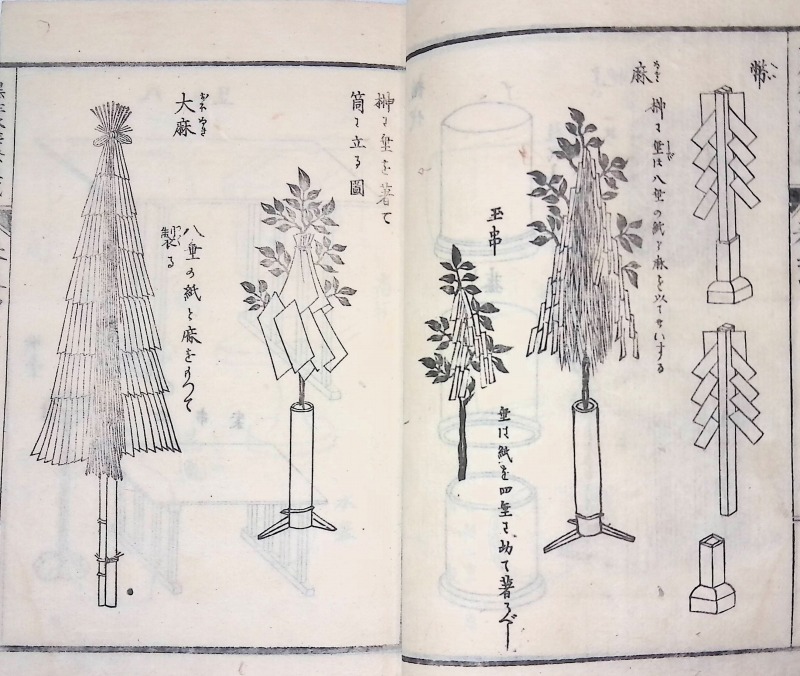 幣
麻
榊に垂は八垂の紙と麻を以てせいする
玉串
垂は紙を四垂に切て著るべし
榊に垂を著て
筒に立る圖
大麻
八垂の紙と麻をもつて
製る